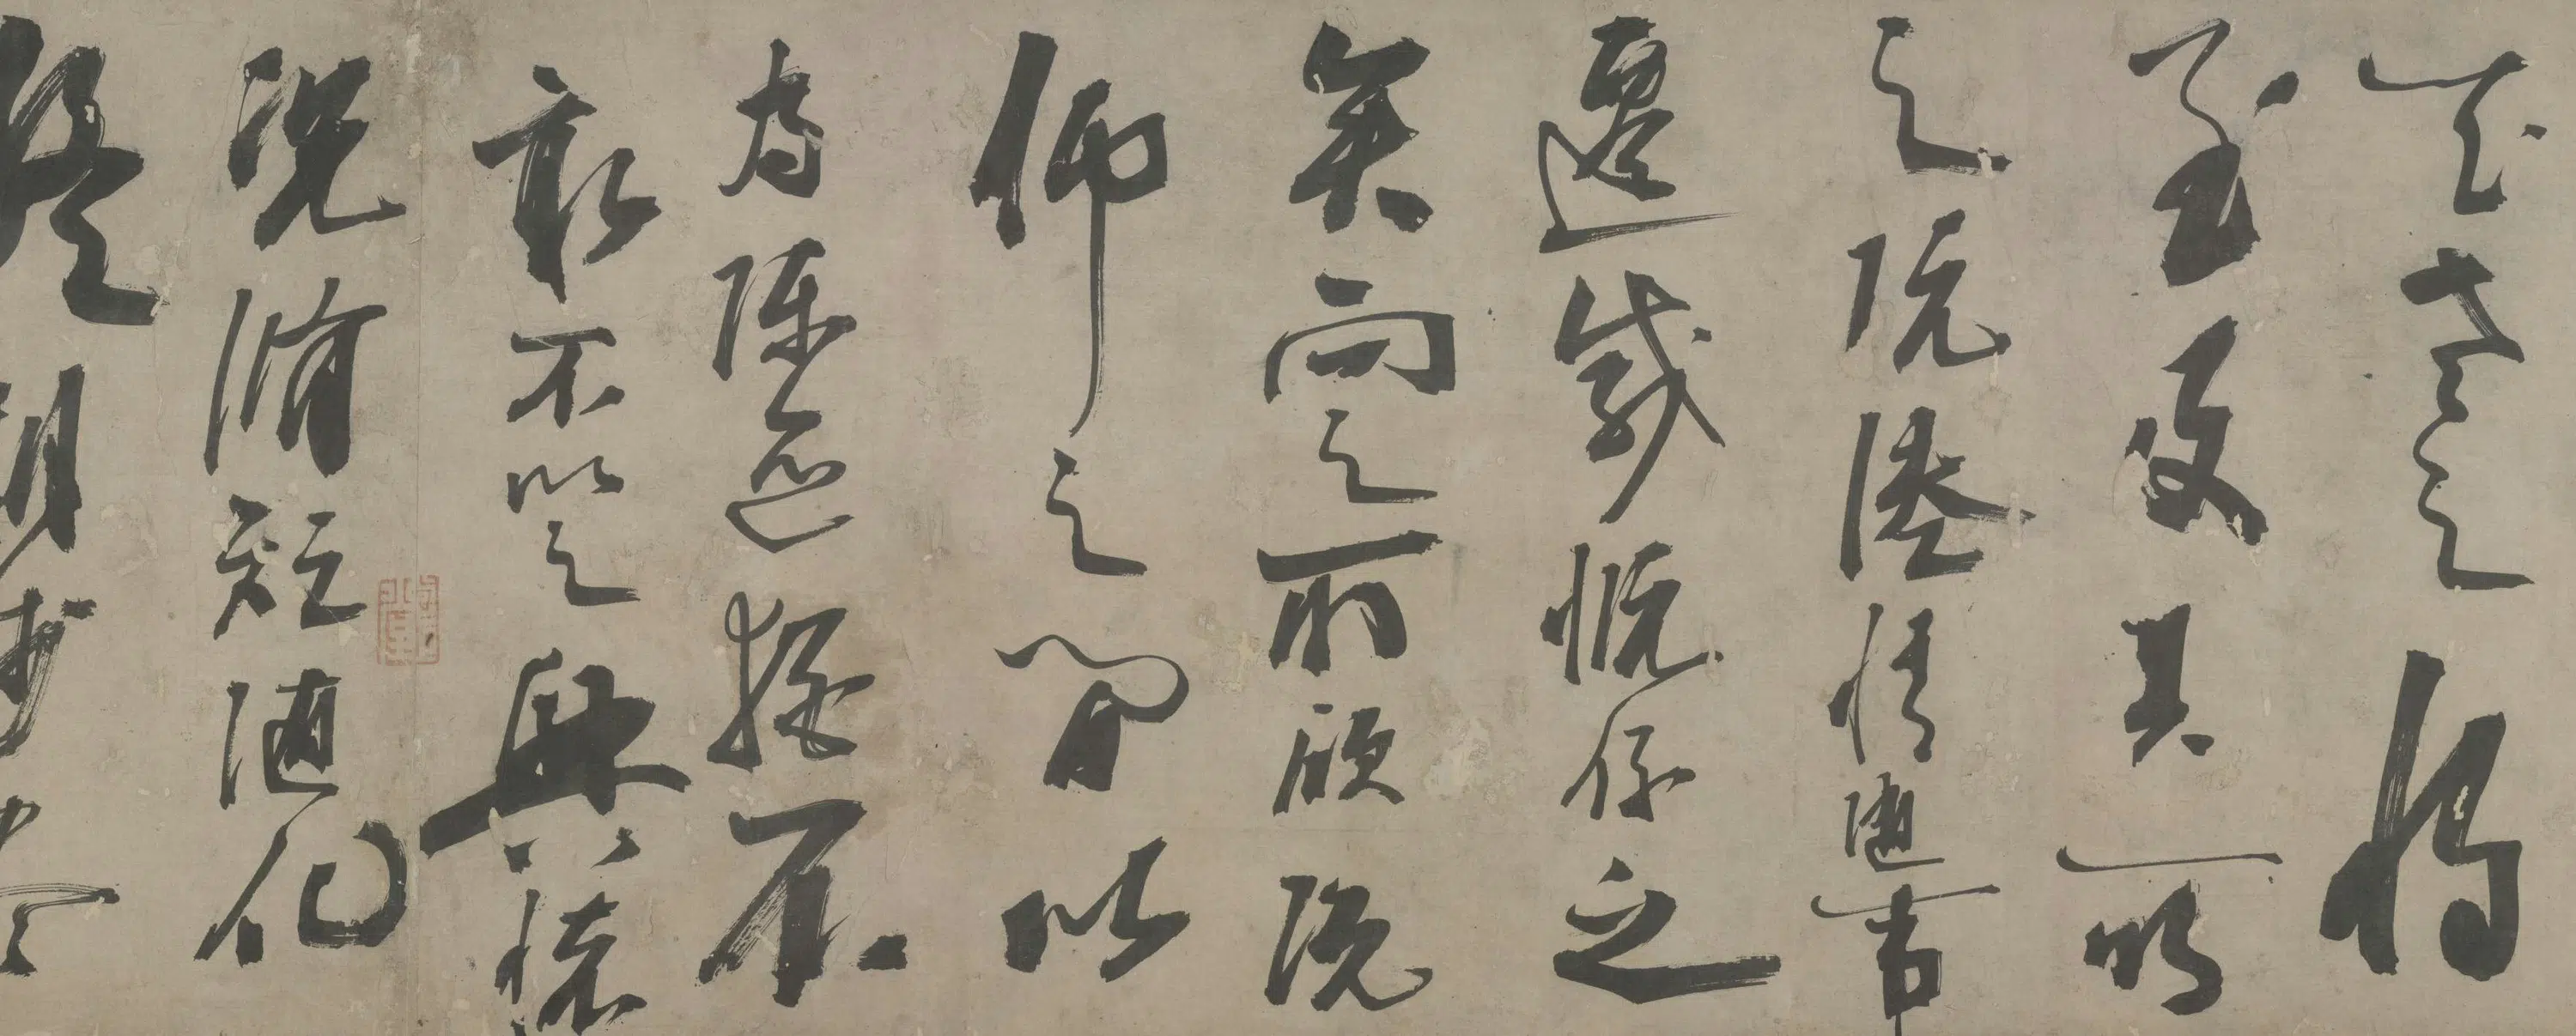 知老之將
至及其所
之既倦情隨事
遷感慨係之
矣向之所欣俛
仰之間以
為陳迹猶不
能不以之興懷
況脩短隨化
終期於盡